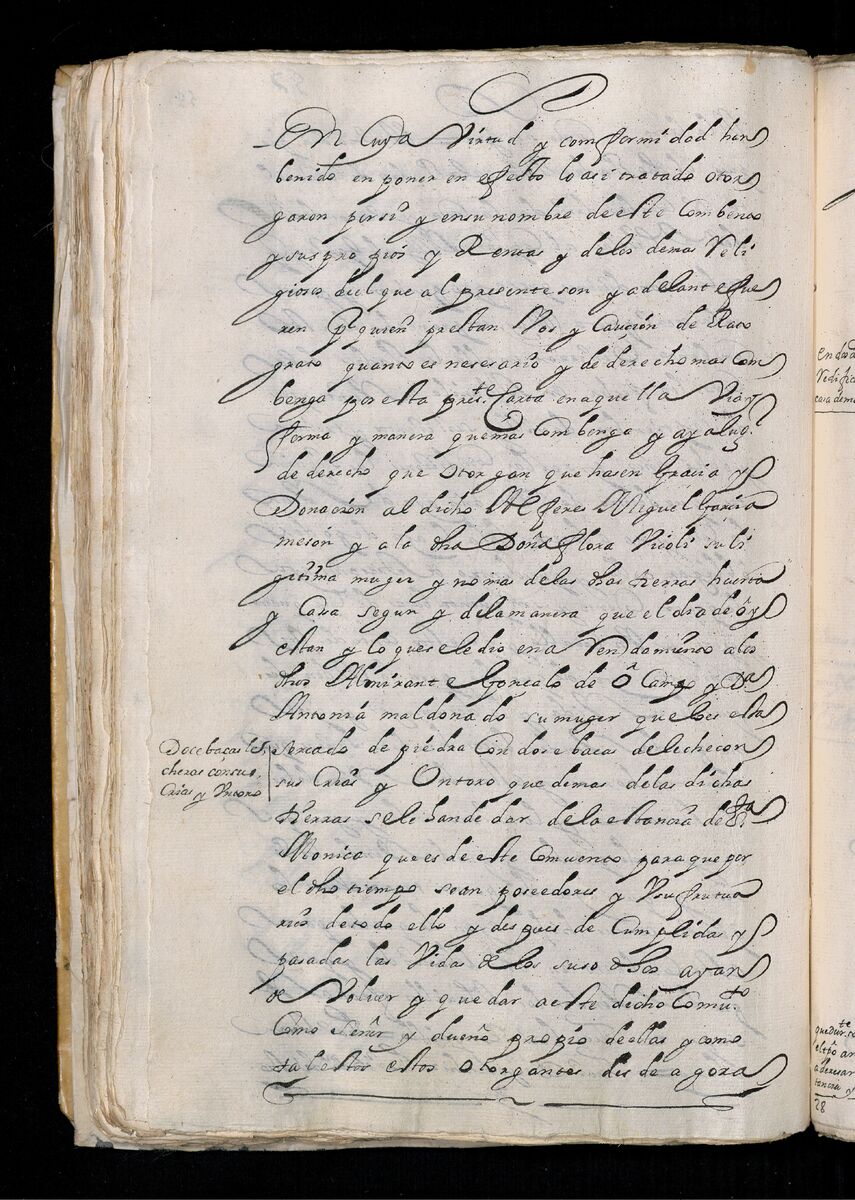 En Cuya Virtud y comformidad han
benido en poner en efecto lo asi tratado otor
garon por si y en su nombre de este Combento
y sus propios y Rentas y de los demas Reli
giosos del que al presente son y adelante fue
ren Pr quien prestan Vos y Caución de Rato
grato quanto es nesesario y de derecho mas Com
benga por esta preste Carta en aquella Via y
forma y manera que mas Combenga y aya lugr
de derecho que otorgan que hasen Gracia y
Donación al dicho Alferes Miguel Garcia
meson y a la dha Doña Flora Vicoli su li
gitima muger y no mas de las dhas tierras huerta
y Casa segun y de la manera que el dia de oy
estan y lo que se le dio en a Vendamiento a los
dhos Almirante Gonsalo de OCampo y Da
Antonia maldonado su muger que los esta
sercado de piedra Con dose bacas de leche con
sus Crias y Un toro que demas de las dichas
tierras se le han de dar de la estancia de Sta
Monica que es de este Comvento para que por
el dho tiempo sean poseedores y Usufrutua
rios de todo ello y despues de Cumplidas y
pasadas las Vidas de los suso dhos ayan
de Volver y quedar a este dicho Comto
Como Señor y dueño propio de ellas y como
tal estos otorgantes desde agora
Doce bacas le
cheras con sus
Crias y Un toro
en dos
Redific
casa dem
te
quedar
el tpo
aderesar
tancia y
28